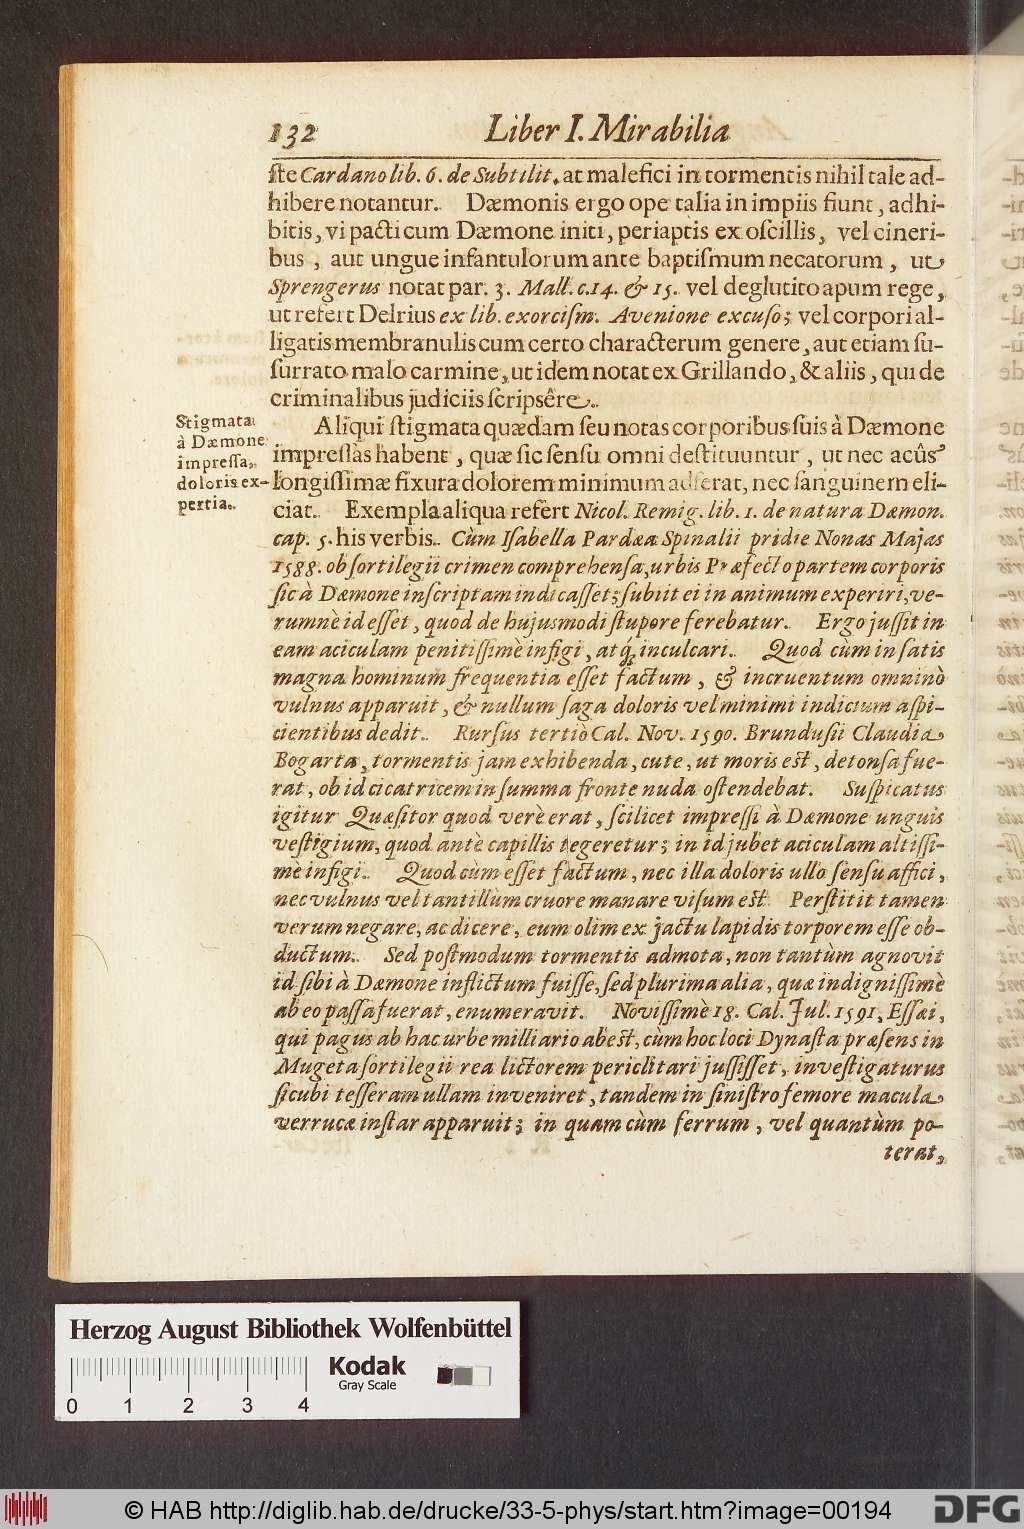 132 Liber I. Mirabilia
ſte Cardano lib. 6. de Subtilit. at malefici in tormentis nihil tale ad-
hibere notantur. Dæmonis ergo ope talia in impiis fiunt, adhi-
bitis, vi pacti cum Dæmone initi, periaptis ex oſcillis, vel cineri-
bus, aut ungue infantulorum ante baptiſmum necatorum, ut
Sprengerus notat par. 3. Mall. c. 14. & 15. vel deglutito apum rege,
ut refert Delrius ex lib. exorciſm. Avenione excuſo; vel corpori al-
ligatis membranulis cum certo characterum genere, aut etiam ſu-
ſurrato malo carmine, ut idem notat ex Grillando, & aliis, qui de
criminalibus judiciis ſcripsêre.
Stigmata
à Dæmone
impreſſa,
doloris ex-
pertia.
Aliqui ſtigmata quædam ſeu notas corporibus ſuis à Dæmone
impreſſas habent, quæ ſic ſenſu omni deſtituuntur, ut nec acûs
longiſſimæ fixura dolorem minimum adferat, nec ſanguinem eli-
ciat. Exempla aliqua refert Nicol. Remig. lib. 1. de natura Dæmon.
cap. 5. his verbis. Cùm Iſabella Pardæa Spinalii pridie Nonas Majas
1588. ob ſortilegii crimen comprehenſa, urbis Præfecto partem corporis
ſic à Dæmone inſcriptam indicaſſet; ſubiit ei in animum experiri, ve-
rumnè id eſſet, quod de hujusmodi ſtupore ferebatur. Ergo juſſit in
eam aciculam penitiſſimè infigi, atq́; inculcari. Quod cùm in ſatis
magna hominum frequentia eſſet factum, & incruentum omninò
vulnus apparuit, & nullum ſaga doloris vel minimi indicium aſpi-
cientibus dedit. Rurſus tertiò Cal. Nov. 1590. Brunduſii Claudia
Bogarta, tormentis jam exhibenda, cute, ut moris eſt, detonſa fue-
rat, ob id cicatricem in ſumma fronte nuda oſtendebat. Suſpicatus
igitur Quæſitor quod verè erat, ſcilicet impreſſi à Dæmone unguis
veſtigium, quod antè capillis tegeretur; in id jubet aciculam altiſſi-
mè infigi. Quod cùm eſſet factum, nec illa doloris ullo ſenſu affici,
nec vulnus vel tantillùm cruore manare viſum eſt. Perſtitit tamen
verum negare, ac dicere, eum olim ex jactu lapidis torporem eſſe ob-
ductum. Sed poſtmodum tormentis admota, non tantùm agnovit
id ſibi à Dæmone inflictum fuiſſe, ſed plurima alia, quæ indigniſſimè
ab eo paſſa fuerat, enumeravit. Noviſſimè 18. Cal. Jul. 1591. Eſſæi,
qui pagus ab hac urbe milliario abeſt, cùm hoc loci Dynaſta præſens in
Mugeta ſortilegii rea lictorem periclitari juſſiſſet, inveſtigaturus
ſicubi teſſeram ullam inveniret, tandem in ſiniſtro femore macula
verrucæ inſtar apparuit; in quam cùm ferrum, vel quantùm po-
terat,
Herzog August Bibliothek Wolfenbüttel
Kodak
Gray Scale
0 1 2 3 4
© HAB http://diglib.hab.de/drucke/33-5-phys/start.htm?image=00194
DFG